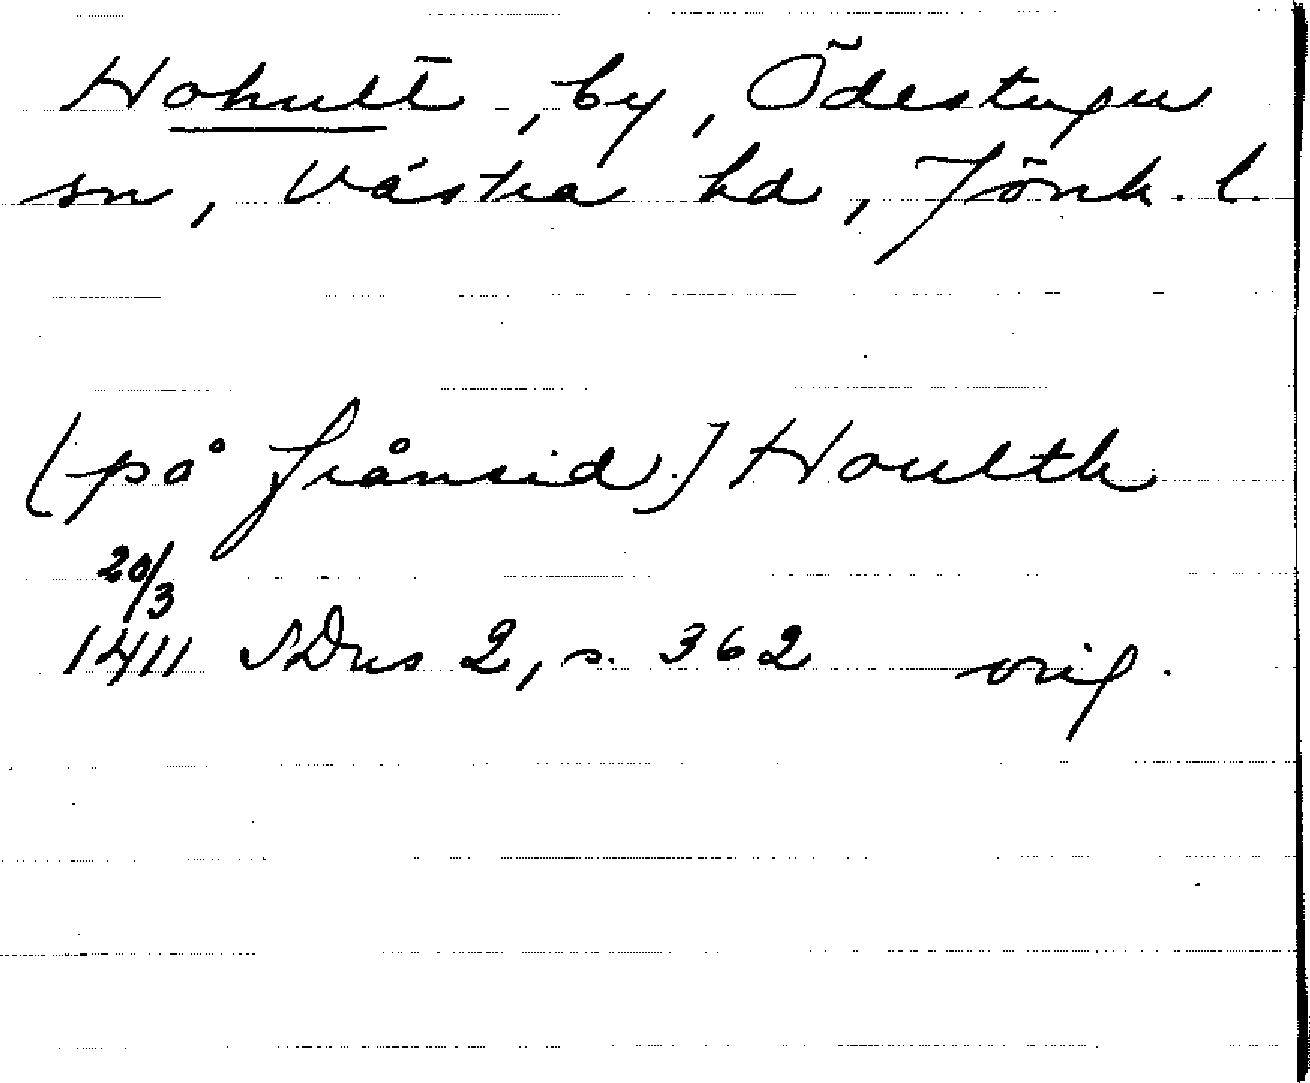 Hohult, by, Ödestugu
sn, Västra hd, Jönk. l.
[på frånsid.] Houlth
20/3
1411 SDns 2, s. 362 orig.